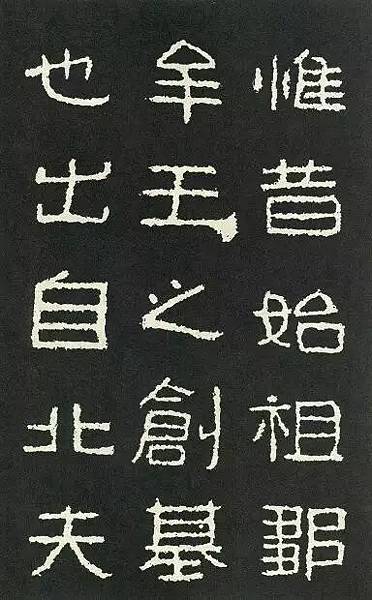 惟昔始祖鄒
牟王之創基
也出自北夫